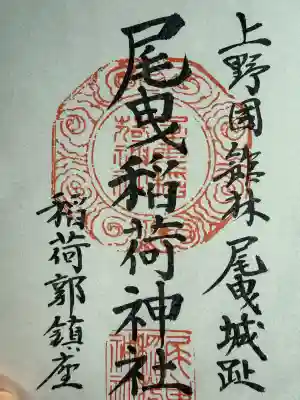 上野国舘林 尾曳城趾
尾曳稲荷神社
稲荷郭鎮座